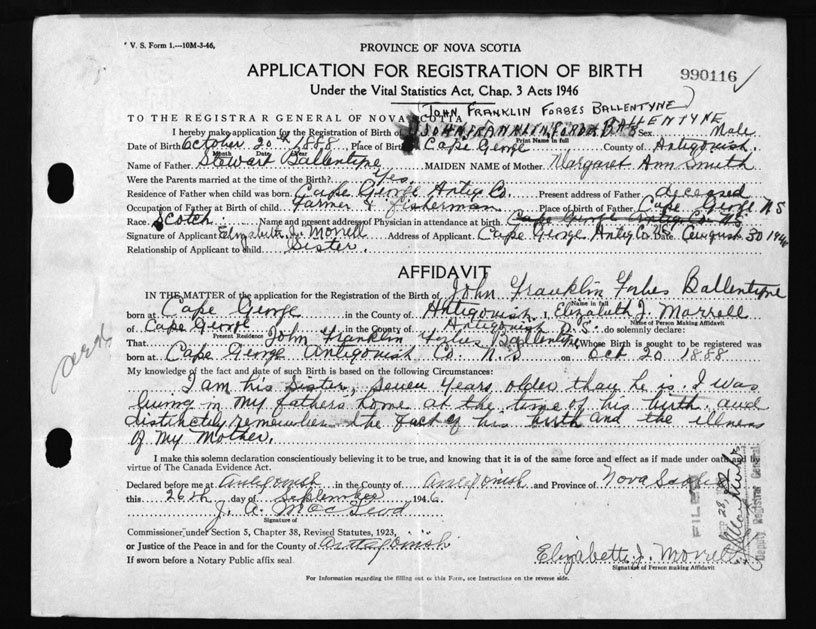 V. S. Form 1.—10M-3-46.
PROVINCE OF NOVA SCOTIA
APPLICATION FOR REGISTRATION OF BIRTH
990116
Under the Vital Statistics Act, Chap. 3 Acts 1946
(JOHN FRANKLIN FORBES BALLENTYNE)
TO THE REGISTRAR GENERAL OF NOVA SCOTIA
BALLENTYNE
I hereby make application for the Registration of Birth of JOHN FRANKLIN Sex Male
Print Name in full
Date of Birth October 20th 1888 Place of Birth Cape George County of Antigonish.
Month Day Year
Name of Father Stewart Ballentyne MAIDEN NAME of Mother Margaret Ann Smith
Were the Parents married at the time of Birth? Yes.
Residence of Father when child was born. Cape George Antig. Co. Present address of Father deceased
Occupation of Father at Birth of child. Farmer & Fisherman Place of Birth of Father Cape George N S
Race. Scotch Name and present address of Physician in attendance at birth. Cape George Antig Co NS
Signature of Applicant Elizabeth J. Morrell Address of Applicant. Cape George Antig Co. NS. Date August 30 1946
Relationship of Applicant to child. Sister.
AFFIDAVIT
IN THE MATTER of the application for the Registration of Birth of John Franklin Forbes Ballentyne
Name in full
born at Cape George in the County of Antigonish I, Elizabeth J. Morrell
Name of Person Making Affidavit
of Cape George in the County of Antigonish do solemnly declare:
Present Residence
That John Franklin Forbes Ballentyne Whose Birth is sought to be registered was
born at Cape George Antigonish Co. N.S on Oct 20 1888
My knowledge of the fact and date of such Birth is based on the following Circumstances:
I am his Sister, seven years older than he is. I was
living in my fathers home at the time of his birth. and
distinctly remember the fact of his birth and the illness
of my Mother.
I make this solemn declaration conscientiously believing it to be true, and knowing that it is of the same force and effect as if made under oath and by
virtue of The Canada Evidence Act.
Declared before me at Antigonish in the County of Antigonish and Province of Nova Scotia
this 26th day of September 1946
J. A. MacLeod
Signature of
Commissioner under Section 5, Chapter 38, Revised Statutes, 1923,
or Justice of the Peace in and for the County of Antigonish
If sworn before a Notary Public affix seal
Elizabeth J. Morrell
Signature of Person making Affidavit
For Information regarding the filling out of this Form, see Instructions on the reverse side.
FILED
Deputy Registrar General